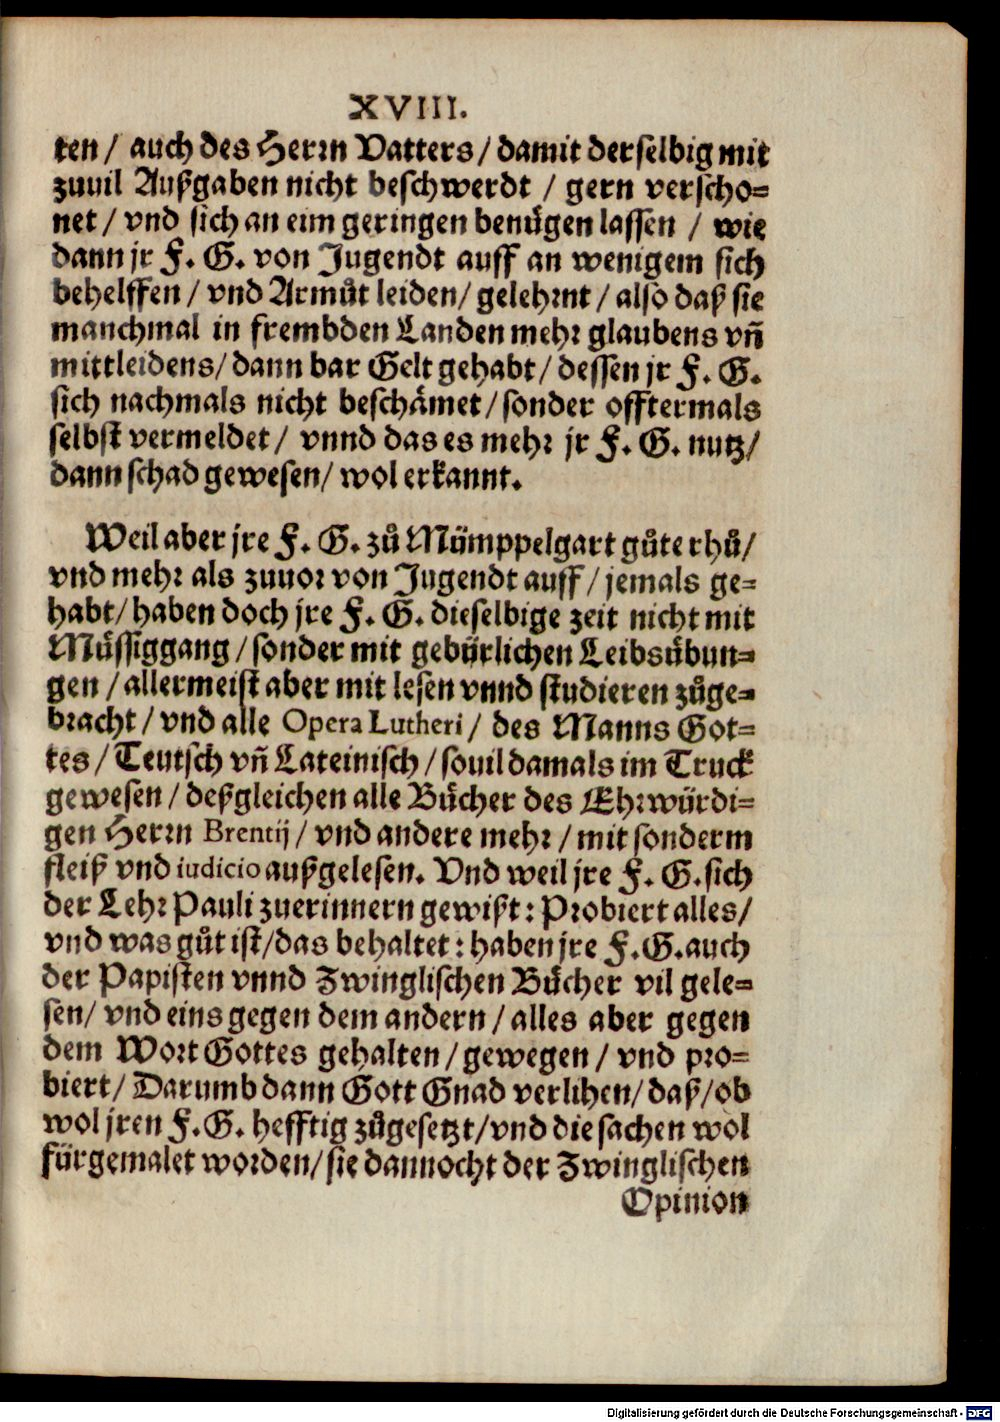 XVIII.
ten / auch des Herꝛn Vatters / damit derselbig mit
zuuil Außgaben nicht beschwerdt / gern verscho⸗
net / vnd sich an eim geringen benuͤgen lassen / wie
dann jr F. G. von Jugendt auff an wenigem sich
behelffen / vnd Armůt leiden / gelehꝛnt / also daß sie
manchmal in frembden Landen mehꝛ glaubens vñ
mittleidens / dann bar Gelt gehabt / dessen jr F. G.
sich nachmals nicht beschaͤmet / sonder offtermals
selbst vermeldet / vnnd das es mehꝛ jr F. G. nutz /
dann schad gewesen / wol erkannt.
Weil aber jre F. G. zů Muͤmppelgart gůte rhů /
vnd mehꝛ als zuuoꝛ von Jugendt auff / jemals ge⸗
habt / haben doch jre F. G. dieselbige zeit nicht mit
Muͤssiggang / sonder mit gebürlichen Leibsuͤbun⸗
gen / allermeist aber mit lesen vnnd studieren zůge⸗
bꝛacht / vnd alle Opera Lutheri / des Manns Got⸗
tes / Teutsch vñ Lateinisch / souil damals im Truck
gewesen / deßgleichen alle Buͤcher des Ehꝛwürdi⸗
gen Herꝛn Brentij / vnd andere mehꝛ / mit sonderm
fleiß vnd iudicio außgelesen. Vnd weil jre F. G. sich
der Lehꝛ Pauli zuerinnern gewißt : Pꝛobiert alles /
vnd was gůt ist / das behaltet : haben jre F. G. auch
der Papisten vnnd Zwinglischen Buͤcher vil gele⸗
sen / vnd eins gegen dem andern / alles aber gegen
dem Woꝛt Gottes gehalten / gewegen / vnd pꝛo⸗
biert / Darumb dann Gott Gnad verlihen / daß / ob
wol jren F. G. hefftig zůgesetzt / vnd die sachen wol
fürgemalet woꝛden / sie dannocht der Zwinglischen
Opinion
Digitalisierung gefördert durch die Deutsche Forschungsgemeinschaft - DFG